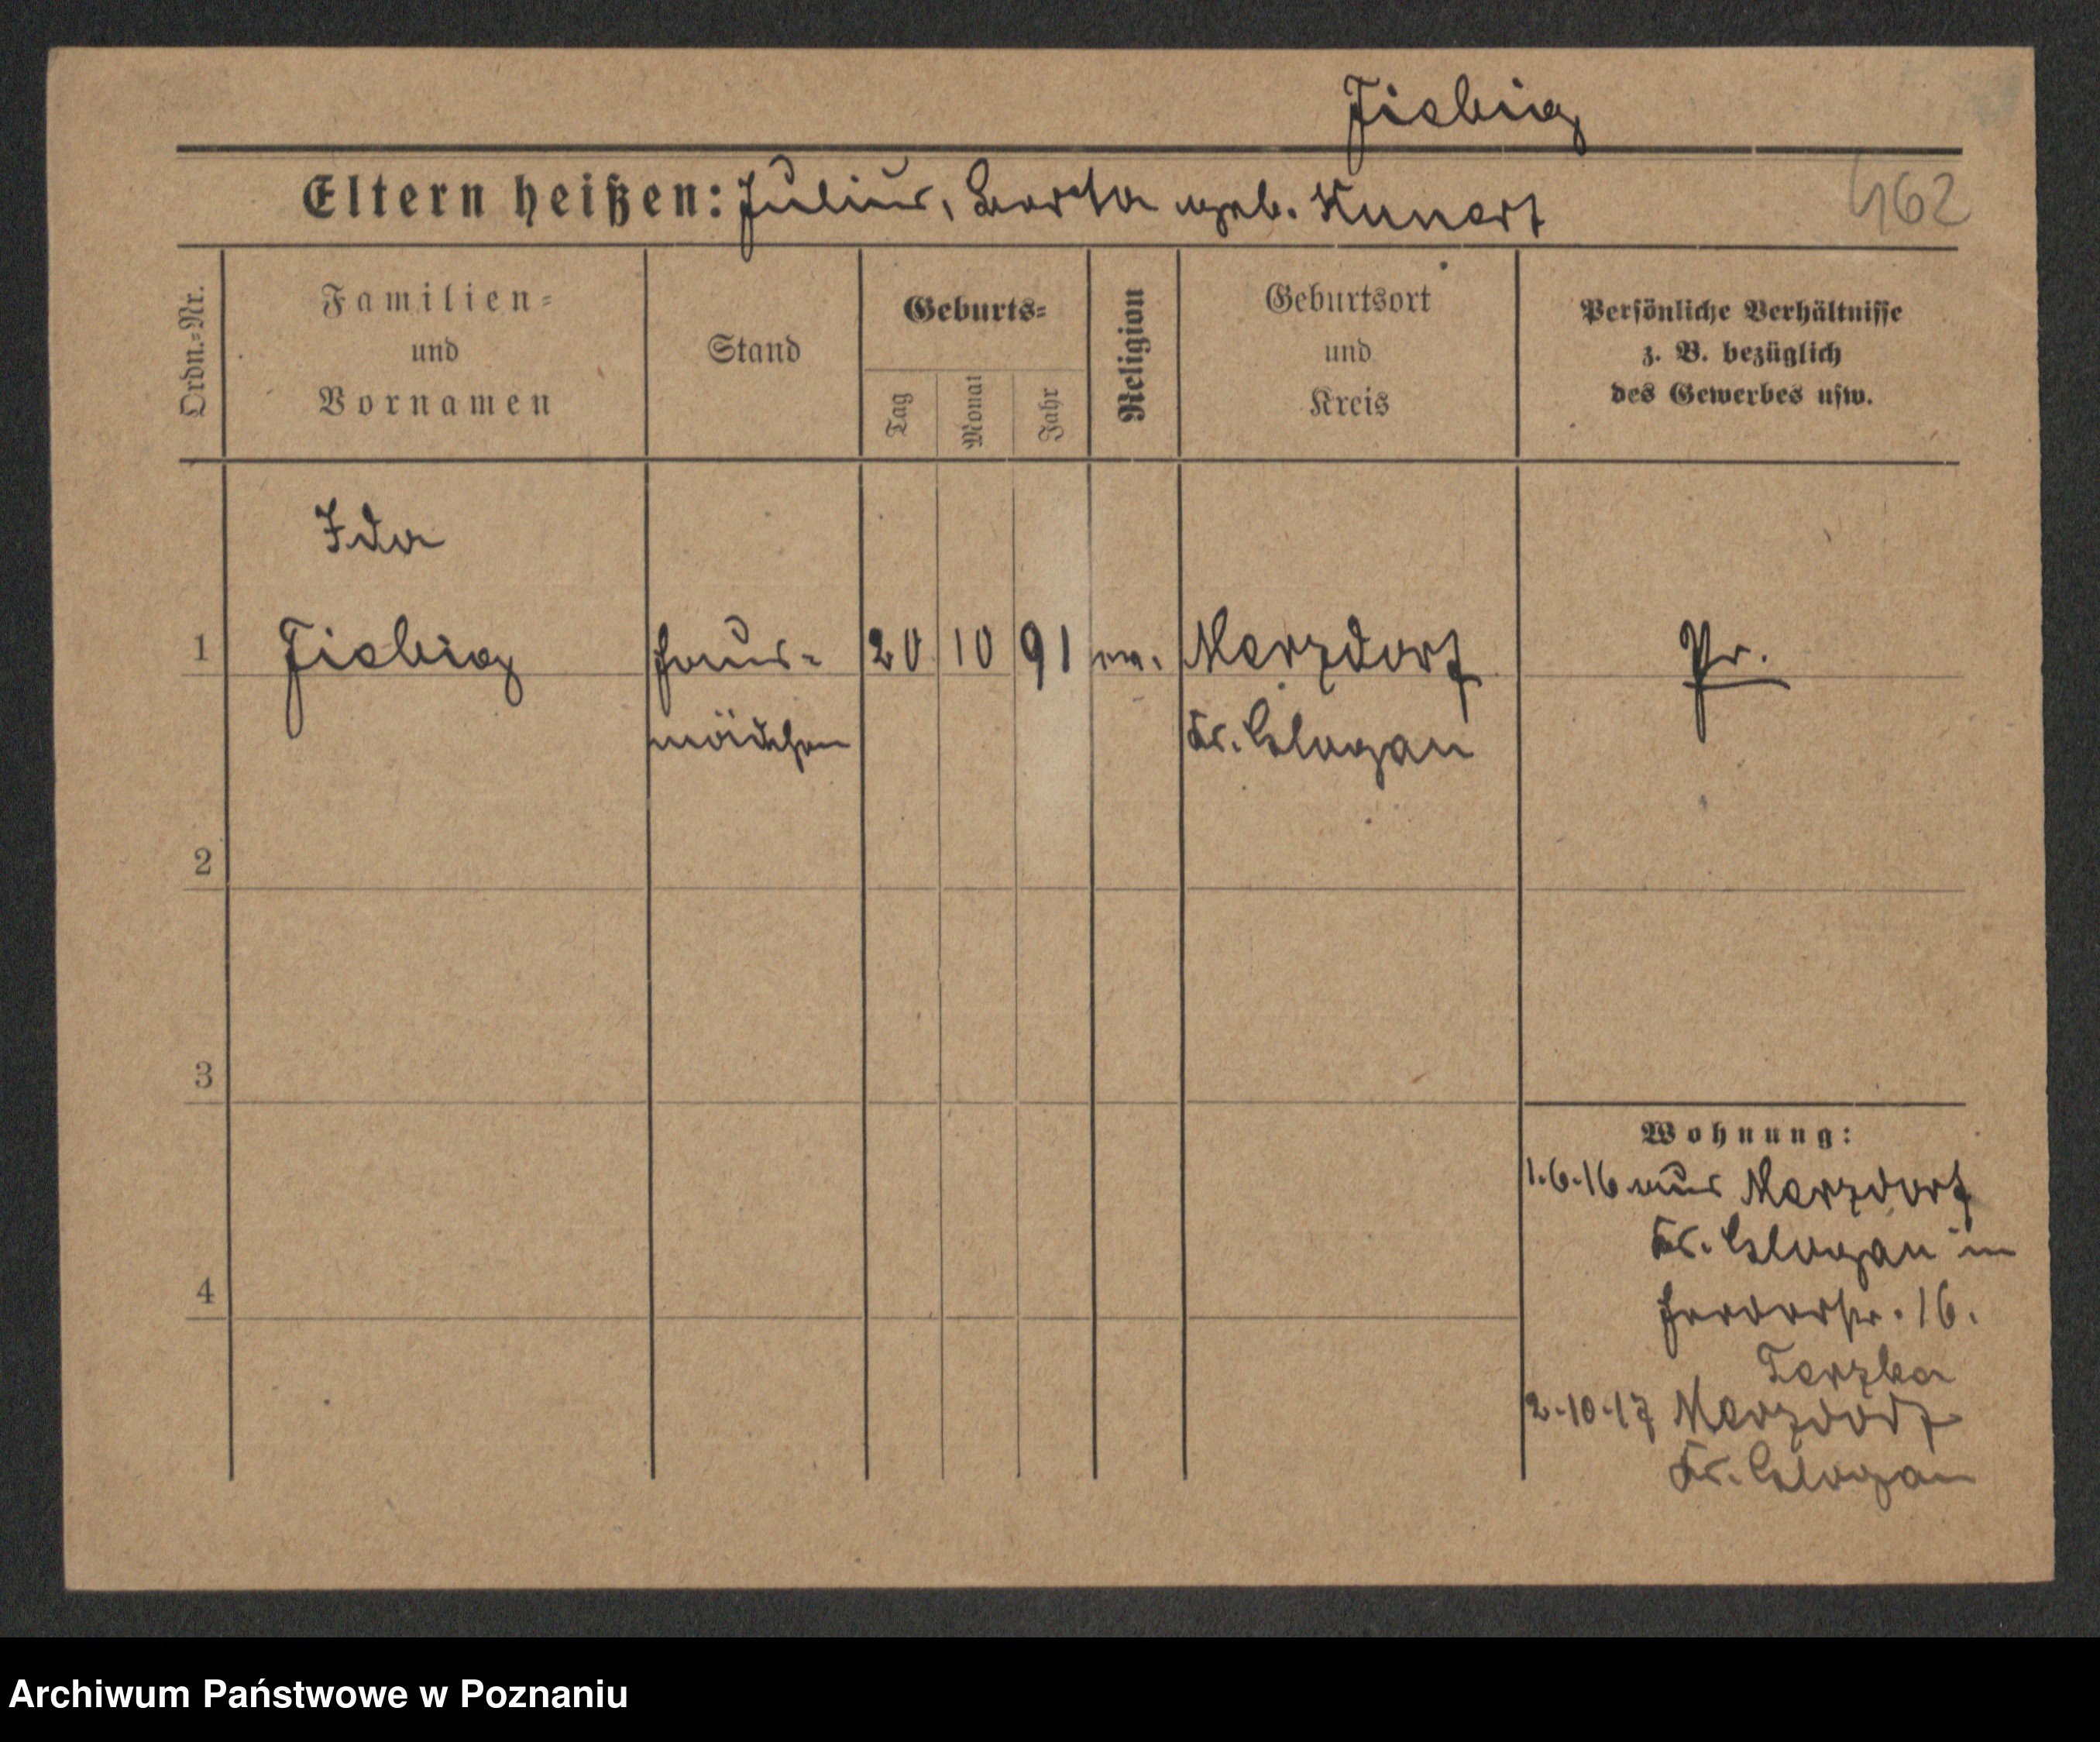 Fiebig
Eltern heißen: Julius, Berta geb. Kunert
462
Ordn.=Nr.
Familien=
und
Vornamen
Stand
Geburts=
Tag
Monat
Jahr
Religion
Geburtsort
und
Kreis
Persönliche Verhältnisse
z. B. bezüglich
des Gewerbes usw.
Ida
1 Fiebig Haus= 20 10 91 ev. Merzdorf Pr.
mädchen Kr. Glogau
2
3
Wohnung:
1.6.16 aus Merzdorf
Kr. Glogau in
4
Herderstr. 16.
Terzka
2.10.17 Merzdorf
Kr. Glogau
Archiwum Państwowe w Poznaniu